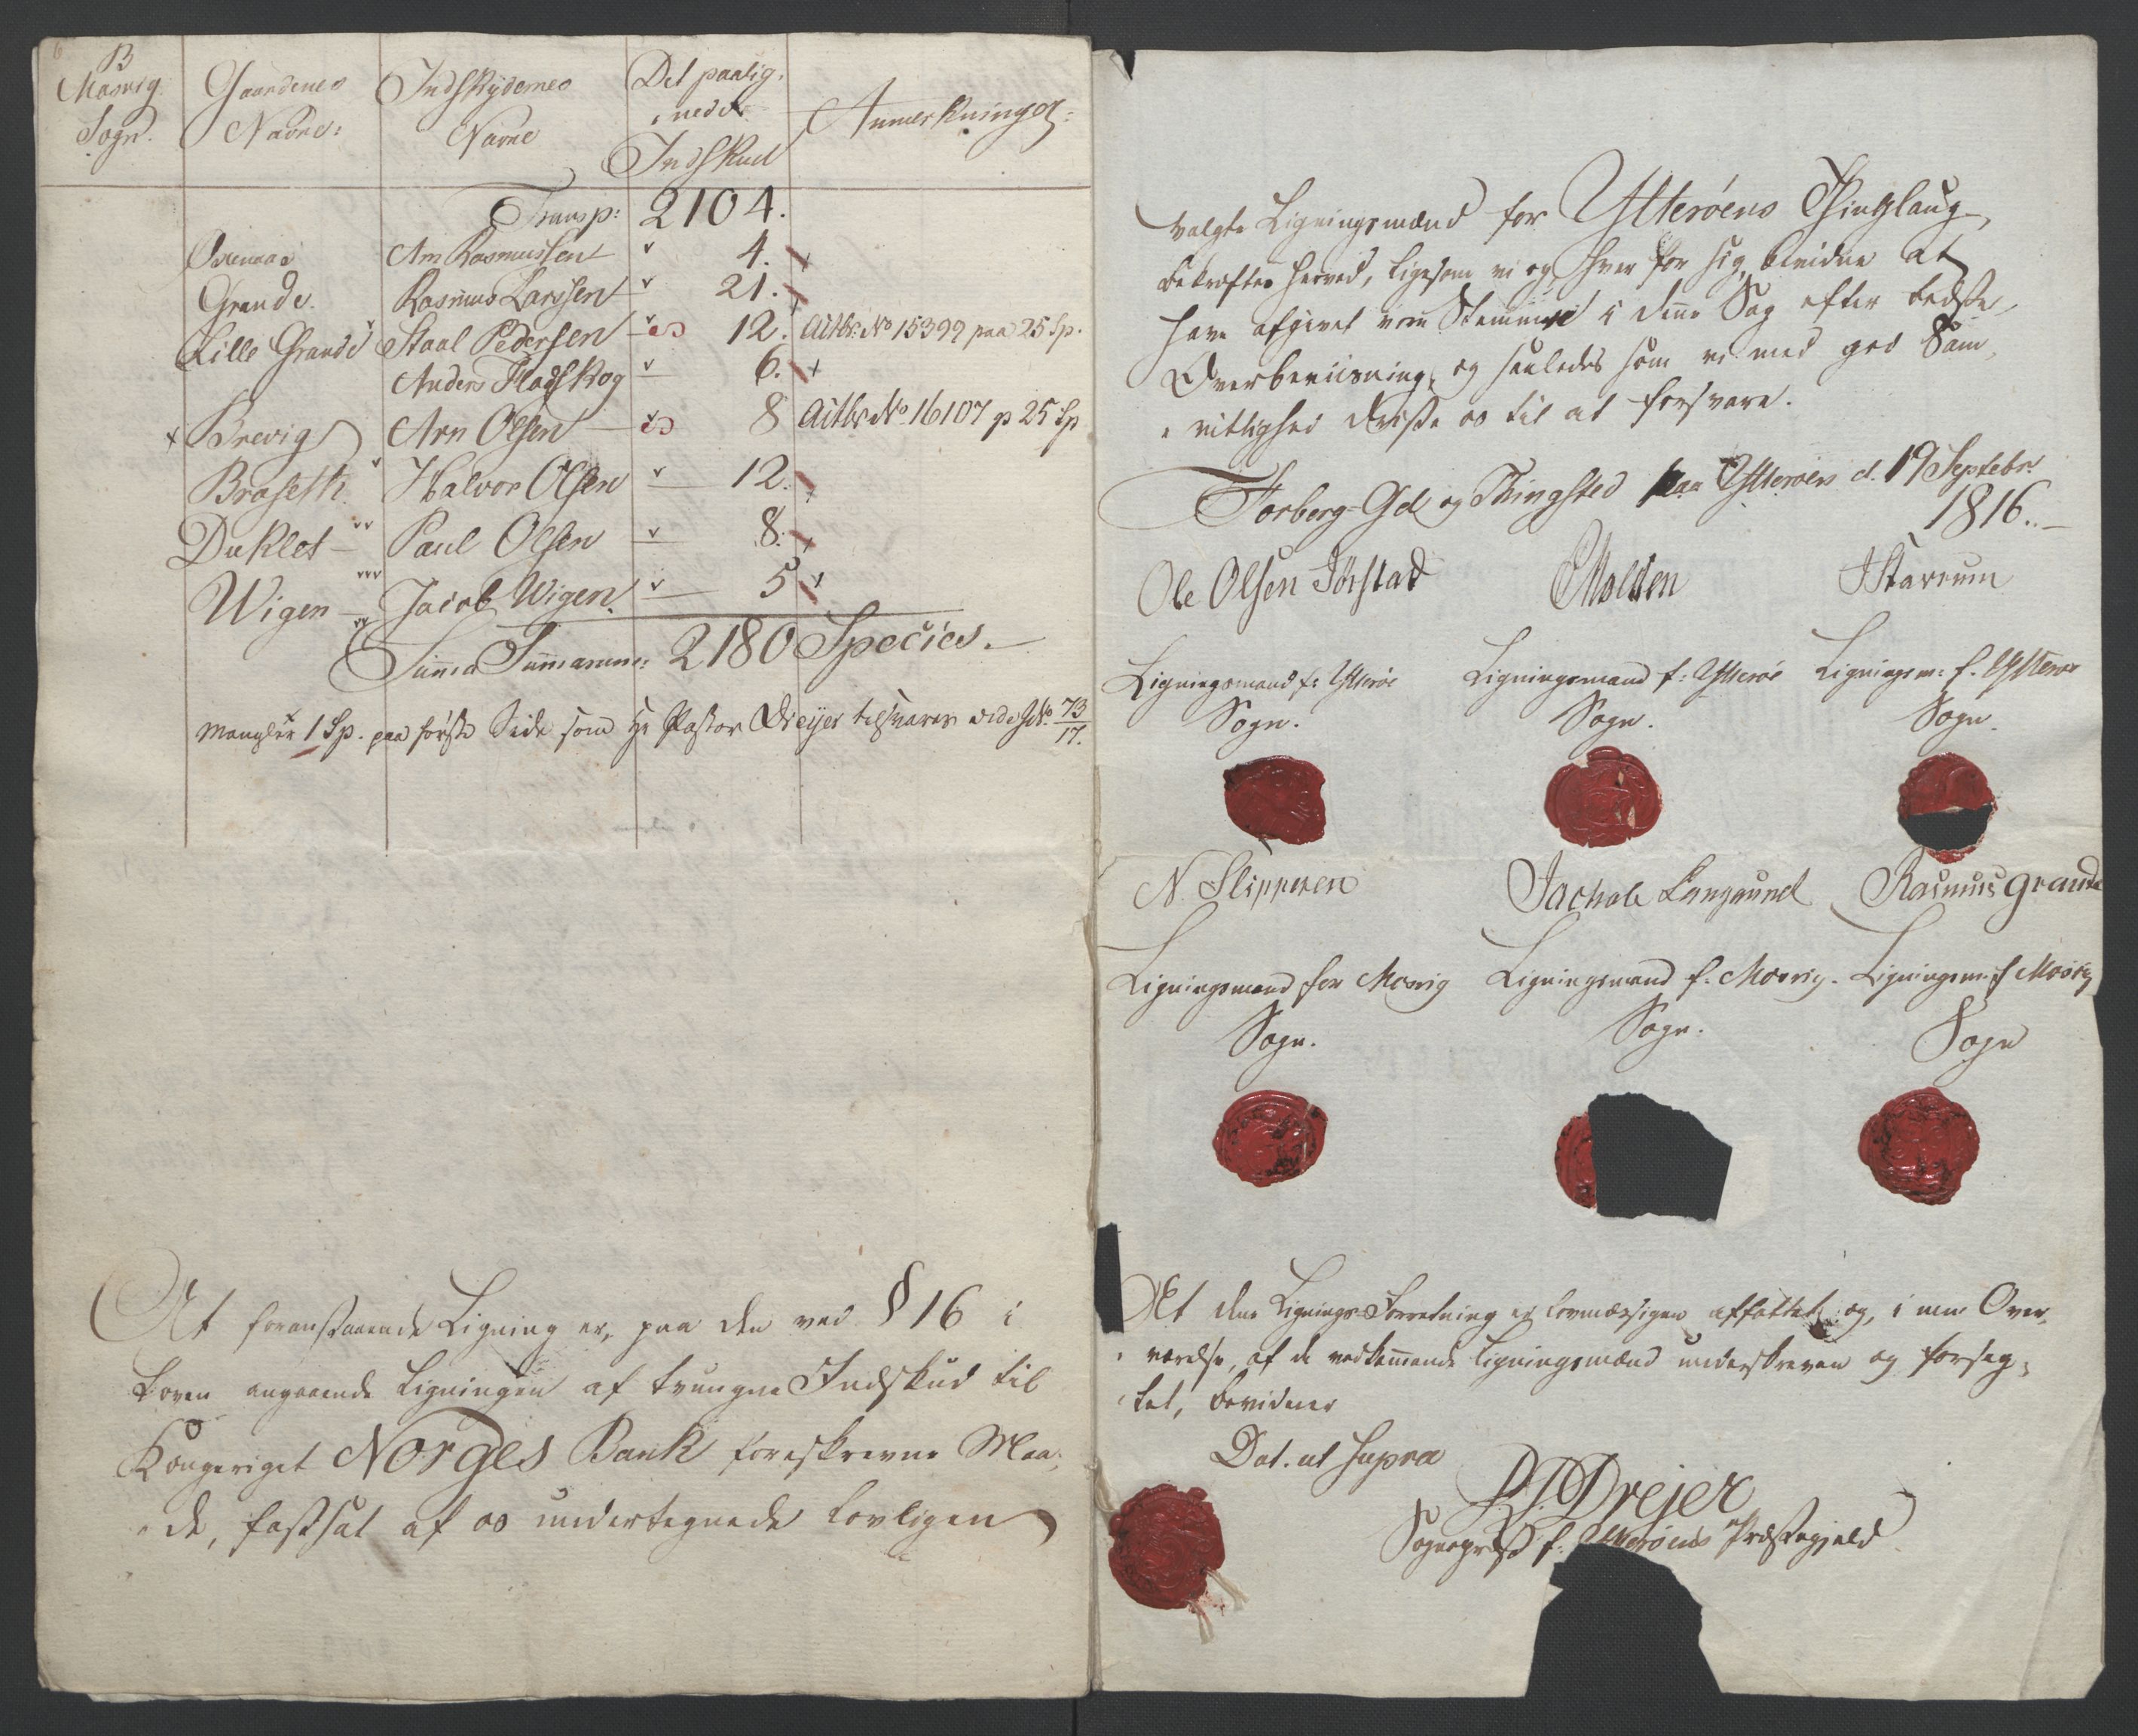 B
Mosvig Sogn.
Gaardenes Navne:
Indskydernes Navne
Det paalignede Indskud
Anmerkninger:
Transp: 2104.
Arn Rasmussen 4.
Grande. Rasmus Larssen 21.
Lille Grande Staal Pedersen 12. Actbr. No 15399 paa 25 Sp.
Anders Flagskog 6.
Brevig Arn Olsen 8 Actbr No 16107 p 25 Sp
Braseth. Halvor Olsen 12.
Duklet Paul Olsen 8.
Wigen Jacob Wigen. 5
Summa Summarum: 2180 Species.
Mangler 1 Sp. paa første Side som Hr Pastor Dreyer tilsvarer vide No 73/17.
At foranstaaende Ligning er, paa den ved § 16 i
Loven angaaende Ligningen af tvungne Indskud til
Kongeriget Norges Bank foreskrevne Maa-
de, fastsat af os undertegnede lovligen
valgte Ligningsmænd for Ytterøens Thinglaug,
bekræftes herved, ligesom vi og, hver for sig, bevidne at
have afgivet vore Stemmer i denne Sag efter bedste
Overbeviisning, og saaledes som vi med god Sam-
vittighed trøste os til at forsvare.
Forberg-Gd og Thingsted paa Ytterøen d. 19 Septebr.
1816.
Ole Olsen Jørstad
Molden
JStavrum
Ligningsmand f: Ytterøe Sogn.
Ligningsmand f: Ytterøe Sogn.
Ligningsm: f. Ytterøe Sogn.
N. Slipperen
Jachob Langaund
Rasmus Grande
Ligningsmand for Mosvig Sogn.
Ligningsmand f. Mosvig Sogn.
Ligningsm: f Mosvig Sogn
At denne Lignings-Forretning er lovmæssigen affattet og, i min Over-
værelse, af de vedkommende Ligningsmænd underskreven og forseg-
let, bevidner
Dat. ut supra
Drejer
Sognepræst f. Ytterøens Præstegjeld